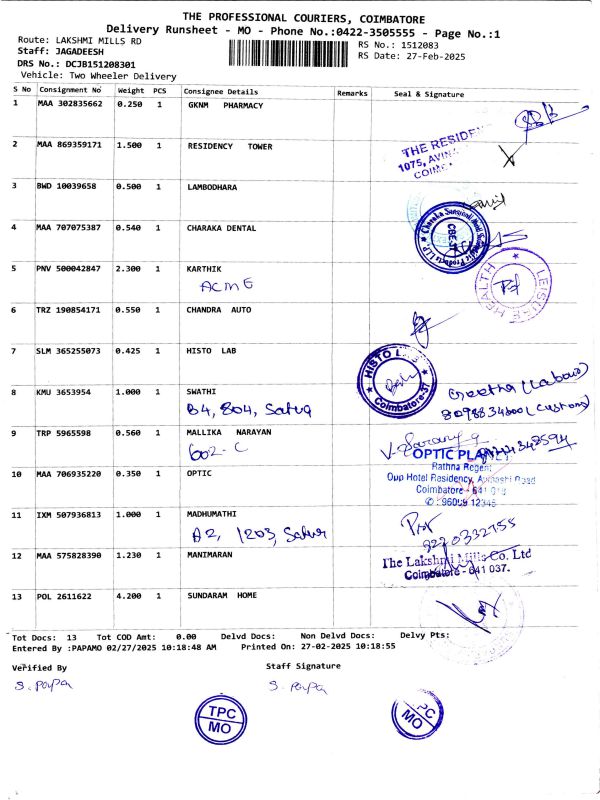 THE PROFESSIONAL COURIERS, COIMBATORE
Delivery Runsheet - MO - Phone No.:0422-3505555 - Page No.:1
Route: LAKSHMI MILLS RD
RS No.: 1512083
Staff: JAGADEESH
RS Date: 27-Feb-2025
DRS No.: DCJB151208301
Vehicle: Two Wheeler Delivery
S No Consignment No Weight PCS Consignee Details Remarks Seal & Signature
1 MAA 302835662 0.250 1 GKNM PHARMACY
2 MAA 869359171 1.500 1 RESIDENCY TOWER
THE RESIDE
1075, AVINA
COIM
3 BWD 10039658 0.500 1 LAMBODHARA
4 MAA 707075387 0.540 1 CHARAKA DENTAL
5 PNV 500042847 2.300 1 KARTHIK
ACME
LEISURE HEALTH
6 TRZ 190854171 0.550 1 CHANDRA AUTO
7 SLM 365255073 0.425 1 HISTO LAB
HISTO L
Coimbatore-37
8 KMU 3653954 1.000 1 SWATHI
B4, 804, Satva
Geetha (Labour)
8098834600 (Customs)
9 TRP 5965598 0.560 1 MALLIKA NARAYAN
602-C
10 MAA 706935220 0.350 1 OPTIC
OPTIC PLANET
Rathna Regent
Opp Hotel Residency, Avinashi Road
Coimbatore - 641 018
✆: 96009 12345
11 IXM 507936813 1.000 1 MADHUMATHI
A2, 1203, Satva
8220332755
12 MAA 575828390 1.230 1 MANIMARAN
The Lakshmi Mills Co. Ltd
Coimbatore - 641 037.
13 POL 2611622 4.200 1 SUNDARAM HOME
Tot Docs: 13 Tot COD Amt: 0.00 Delvd Docs: Non Delvd Docs: Delvy Pts:
Entered By :PAPAMO 02/27/2025 10:18:48 AM Printed On: 27-02-2025 10:18:55
Verified By Staff Signature
S. Papa S. Papa
TPC MO
PC MO